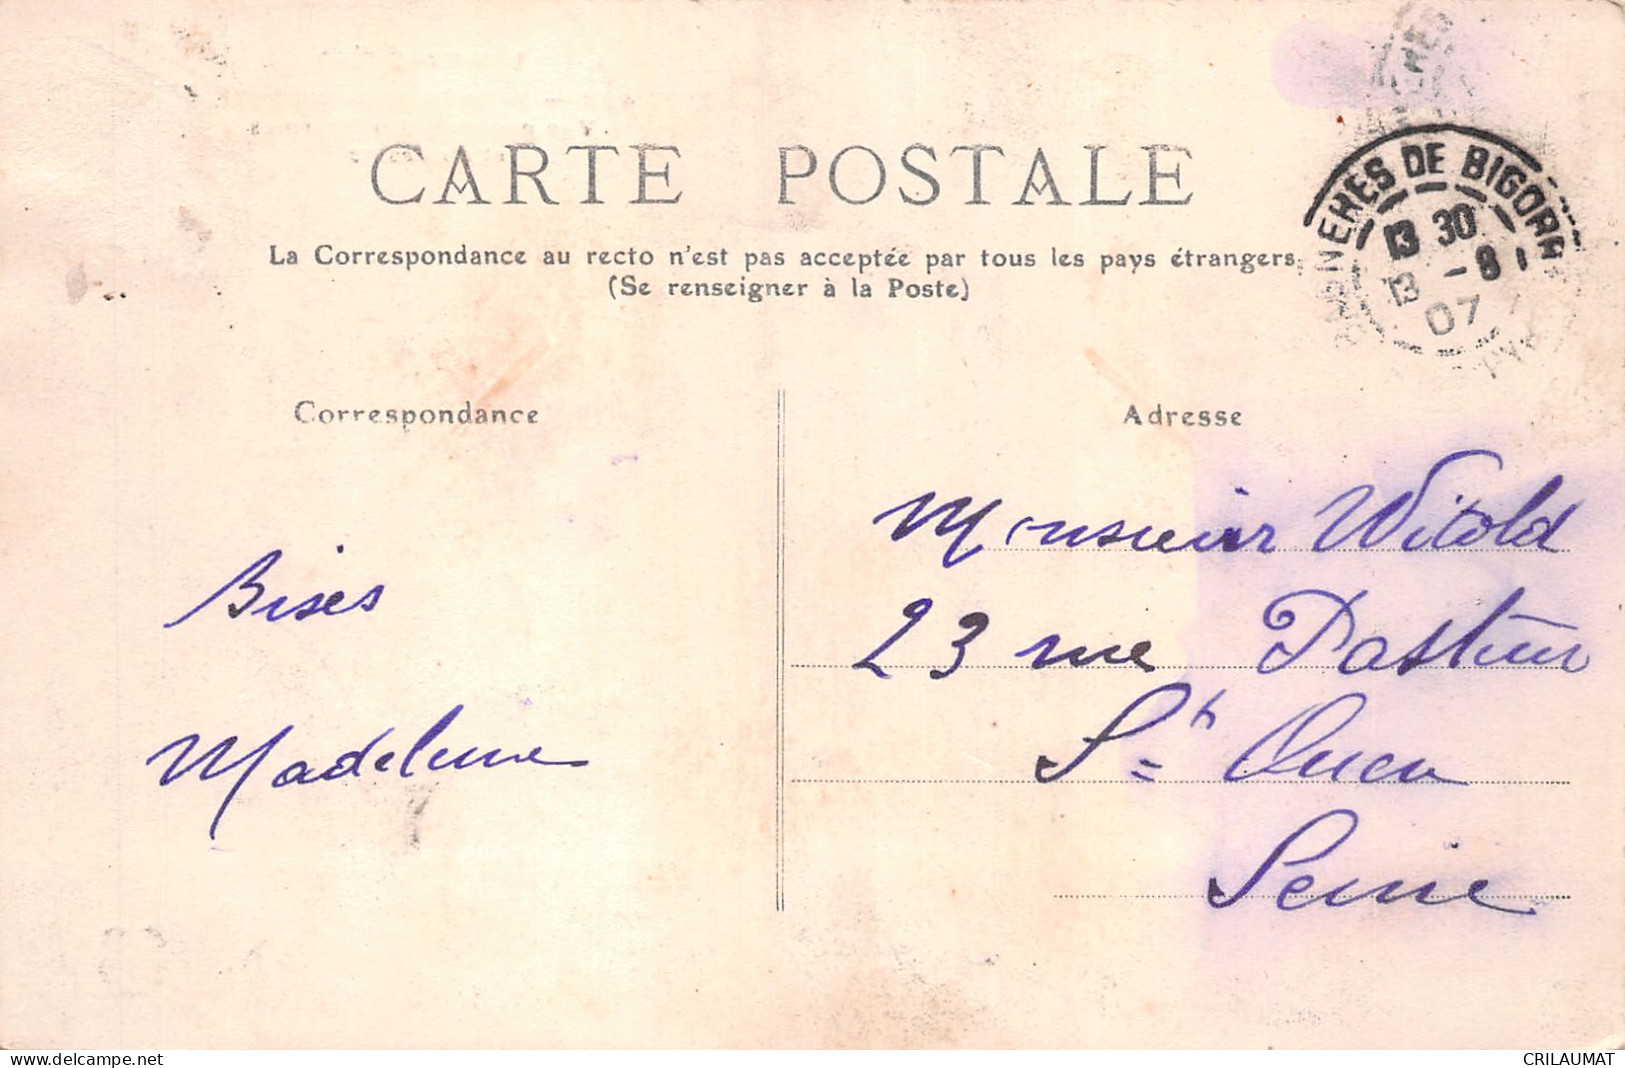 CARTE POSTALE
La Correspondance au recto n'est pas acceptée par tous les pays étrangers
(Se renseigner à la Poste)
BAGNERES DE BIGORRE
13 30
13 -8
07
Correspondance
Adresse
Bises
Madeleine
Monsieur Witold
23 rue Pasteur
St Ouen
Seine
www.delcampe.net
CRILAUMAT